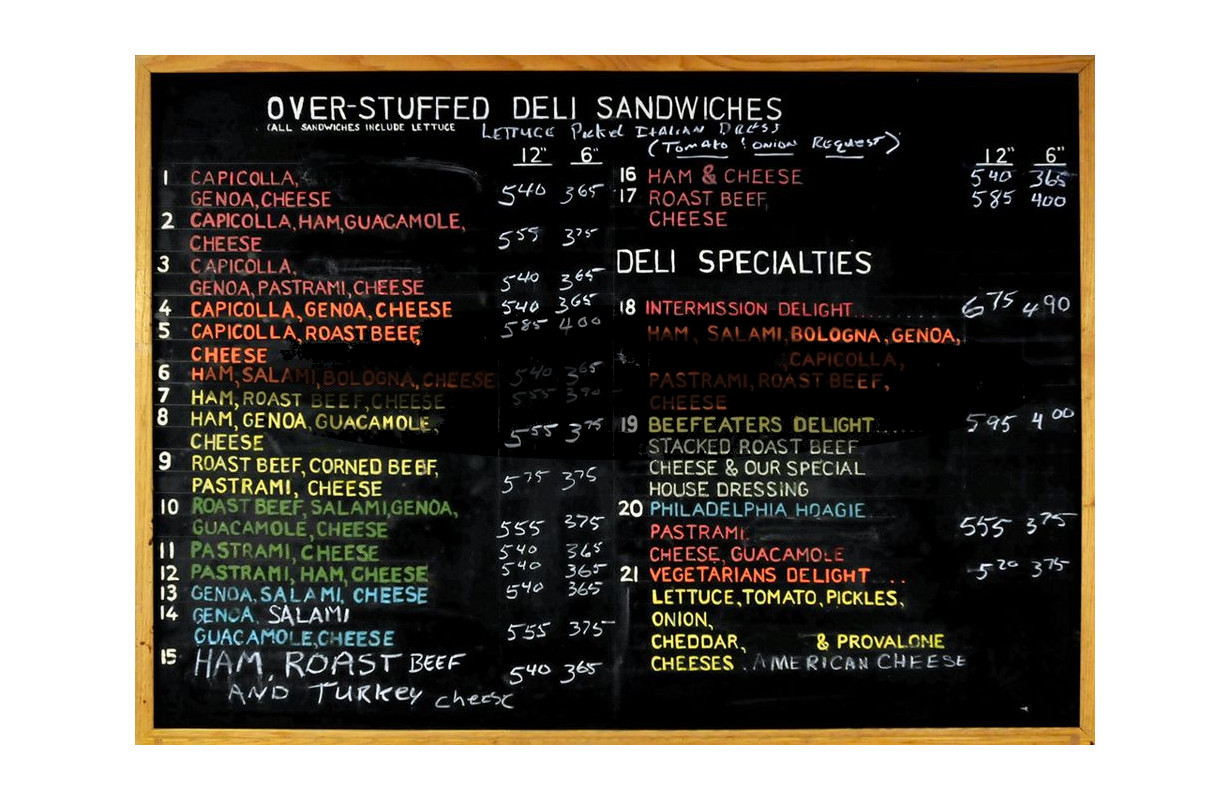 OVER-STUFFED DELI SANDWICHES
(ALL SANDWICHES INCLUDE LETTUCE LETTUCE Pickel ITALIAN DRESS
(TOMATO ! ONION REQUEST)
12" 6"
1 CAPICOLLA,
GENOA, CHEESE 540 365
2 CAPICOLLA, HAM, GUACAMOLE,
CHEESE 555 375
3 CAPICOLLA,
GENOA, PASTRAMI, CHEESE 540 365
4 CAPICOLLA, GENOA, CHEESE 540 365
5 CAPICOLLA, ROAST BEEF, 585 400
CHEESE
6 HAM, SALAMI, BOLOGNA, CHEESE 540 365
7 HAM, ROAST BEEF, CHEESE 555 390
8 HAM, GENOA, GUACAMOLE,
CHEESE 555 375
9 ROAST BEEF, CORNED BEEF,
PASTRAMI, CHEESE 575 375
10 ROAST BEEF, SALAMI, GENOA,
GUACAMOLE, CHEESE 555 375
11 PASTRAMI, CHEESE 540 365
12 PASTRAMI, HAM, CHEESE 540 365
13 GENOA, SALAMI, CHEESE 540 365
14 GENOA, SALAMI
GUACAMOLE, CHEESE 555 375
15 HAM, ROAST BEEF 540 365
AND TURKEY cheese
12" 6"
16 HAM & CHEESE 540 365
17 ROAST BEEF, 585 400
CHEESE
DELI SPECIALTIES
18 INTERMISSION DELIGHT......... 675 490
HAM, SALAMI, BOLOGNA, GENOA,
CAPICOLLA,
PASTRAMI, ROAST BEEF,
CHEESE
19 BEEFEATERS DELIGHT..... 595 400
STACKED ROAST BEEF
CHEESE & OUR SPECIAL
HOUSE DRESSING
20 PHILADELPHIA HOAGIE
PASTRAMI, 555 375
CHEESE, GUACAMOLE
21 VEGETARIANS DELIGHT.... 520 375
LETTUCE, TOMATO, PICKLES,
ONION,
CHEDDAR, & PROVALONE
CHEESES. AMERICAN CHEESE